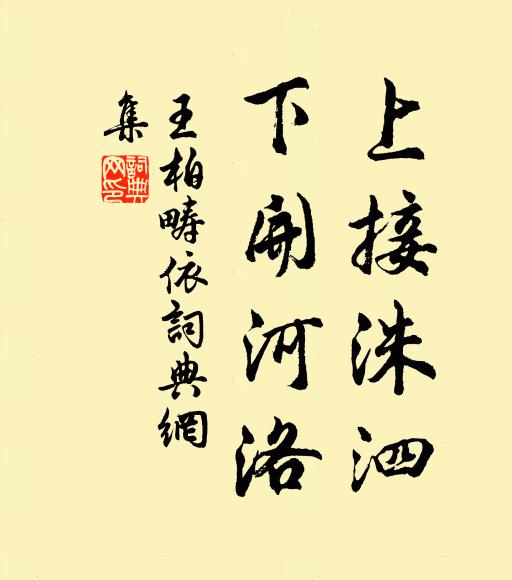 上接洙泗
下開河洛
王柏疇依詞典網
集
詞典
网印